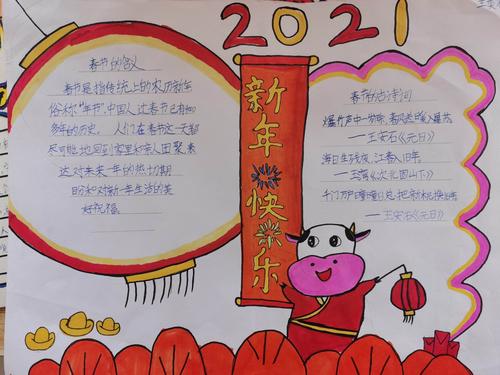 2021
春节的含义
春节是指传统上的农历新年
俗称"年节",中国人过春节已有4000
多年的历史。人们在春节这一天都
尽可能地回到家里和亲人团聚表
达对未来一年的热切期
盼和对新一年生活的美
好祝福
新年快乐
春节的古诗词
爆竹声中一岁除,春风送暖入屠苏
——王安石《元日》
海日生残夜,江春入旧年
——王湾《次北固山下》
千门万户曈曈日,总把新桃换旧符
——王安石《元日》